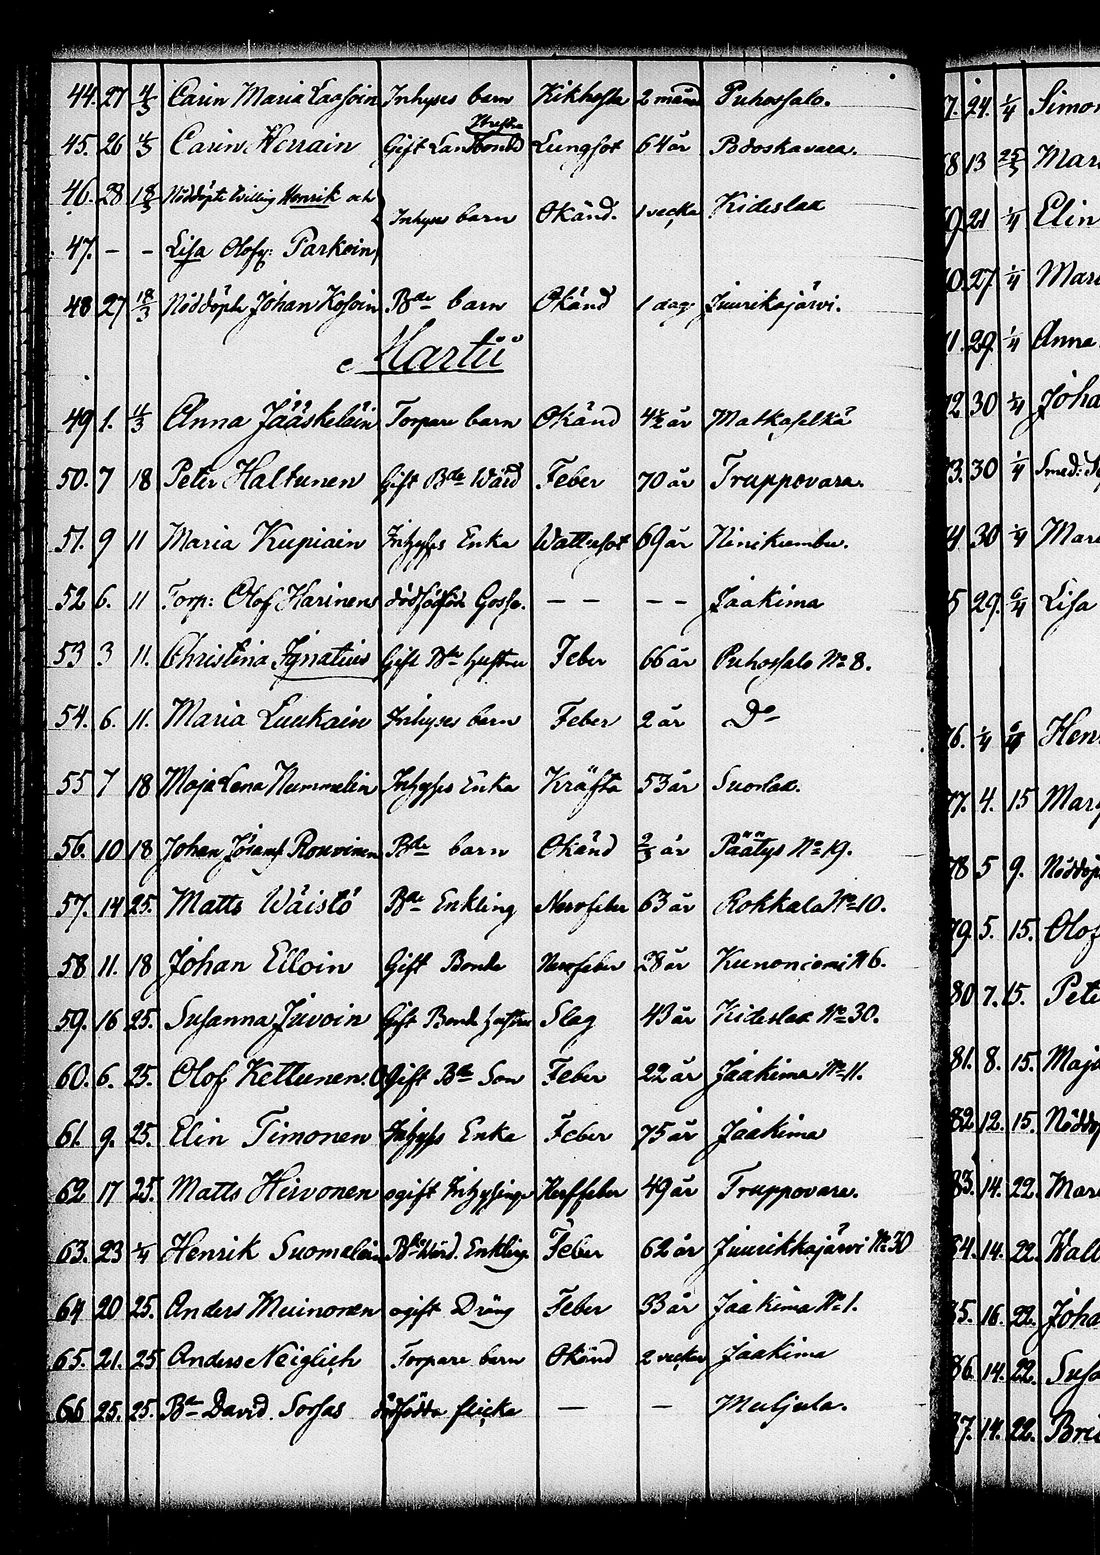 44. 27 4/3 Carin Maria Laasoin Inhyses barn Kikhosta 2 mån Puhossalo.
45. 26 4/3 Carin Herrain Gift Landbonde Hustru Lungsot 64 år Podoskavara.
46. 28 18/3 Nöddöpte Tvilling Henrik och Inhyses barn Okänd. 1 vecka Kideslax
47. – – Lisa Olofz: Parkoin
48 27 18/3 Nöddöpte Johan Kosoin Bde barn Okänd 1 dag Juurikajärvi.
Martii
49 1. 4/3 Anna Jääskeläin Torpare barn Okänd 4½ år Matkaselkä
50. 7 18 Peter Haltunen Gift Bde Wärd Feber 70 år Truppovara.
51. 9 11 Maria Kupiain Inhyses Enka Wattusot 69 år Niinikumbu.
52 6. 11 Torp: Olof Harinens dödfödde Gosse. – – – – Jaakima
53 3 11. Christina Ignatius Gift Bde Hustru Feber 66 år Puhossalo No 8.
54. 6. 11. Maria Luukain Inhyses barn Feber 2 år Do
55 7 18 Maja Lena Nummelin Inhyses Enka Kräfta 53 år Suorlax.
56. 10 18 Johan Rouvinen Bde barn Okänd år Päätys No 19.
57. 14 25. Matts Wäistö Bde Enkling Nervfeber 63 år Rokkala No 10.
58 11. 18 Johan Elloin Gift Bonde Nervfeber 28 år Kunoniemi N 6.
59. 16 25. Susanna Juvoin Gift Bonde hustru Slag 43 år Kideslax No 30.
60. 6. 25. Olof Kettunen. Ogift Bde Son Feber 22 år Jaakima No 11.
61. 9. 25. Elin Timonen Inhyses Enka Feber 75 år Jaakima
62 17 25. Matts Hirvonen ogift Inhysing Nerffeber 49 år Truppovara.
63. 23 1/4 Henrik Suomalain Bde Wärd. Enkling. Feber 62 år Juurikkajärvi No 30
64 20 25. Anders Muinonen ogift Dräng Feber 33 år Jaakima No 1.
65. 21. 25 Anders Neiglich Torpare barn Okänd 2 veckor Jaakima
66 25. 25. Bde David Sorsas dödfödde flicka — — Muljula.
7. 24. 1/4 Simon
8 13 25/3 Mar
9. 21 1/4 Elin
0. 27 1/4 Mar
1. 29. 1/4 Anna
2. 30 1/4 Joha
3. 30 1/4 Smed:
4 30 1/4 Mar
5 29. 6/4 Lisa
6. Hen
77. 4. 15 Mar
78 5 9. Nöddöp
79. 5. 15. Olof
80 7. 15. Pete
81. 8. 15. Maja
82. 12. 15. Nöddö
83. 14. 22. Mar
84. 14. 22. Wall
85. 16. 22. Joha
86. 14. 22. Susa
87. 14. 22. Bri